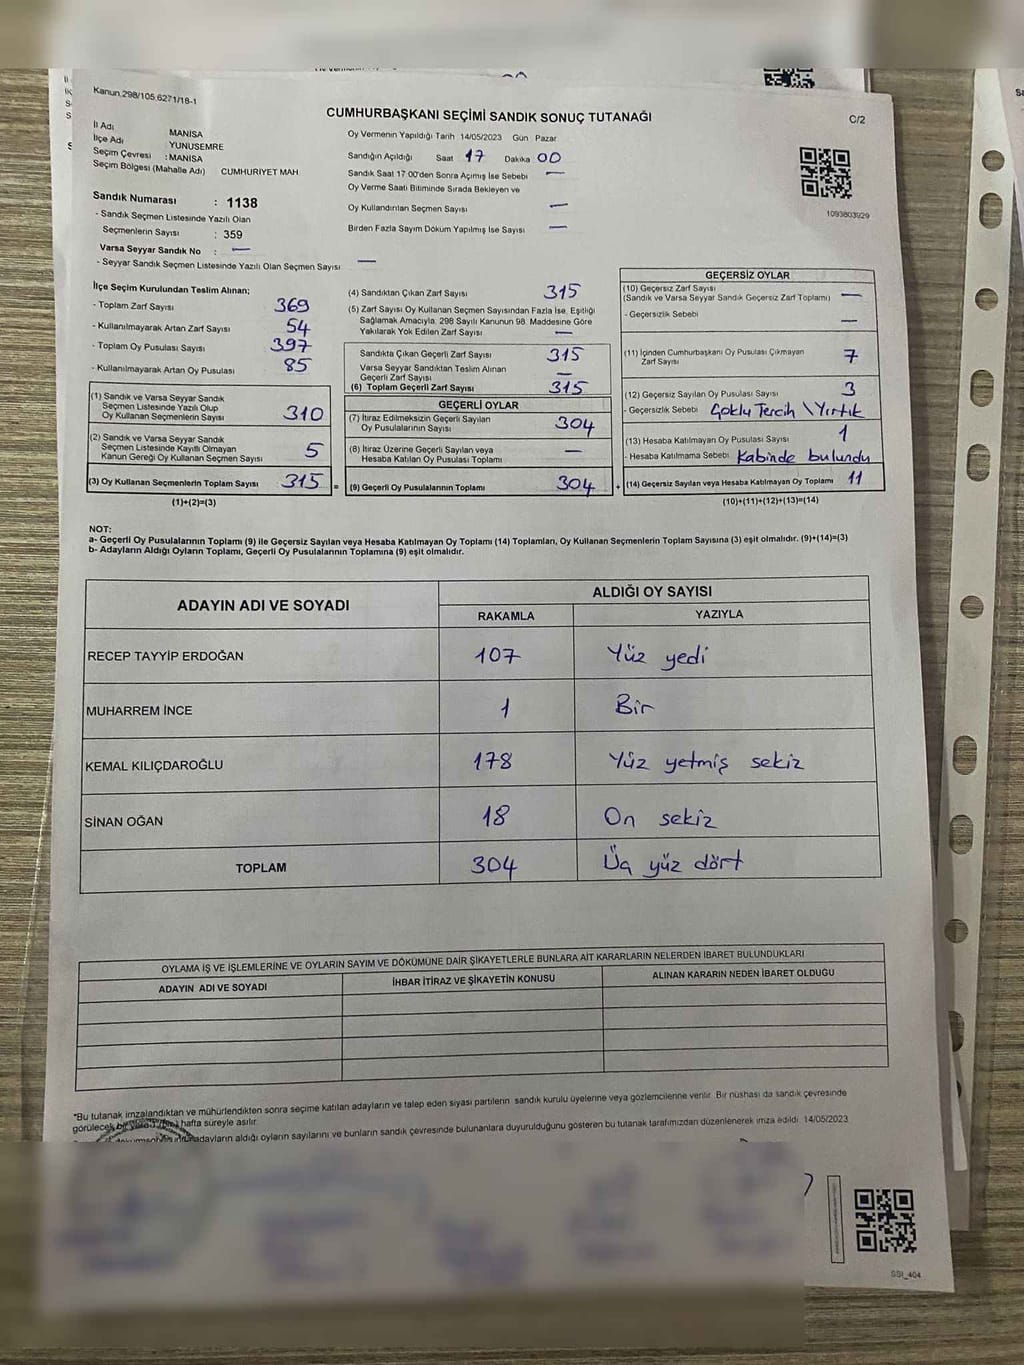 Kanun.298/105,6271/18-1
CUMHURBAŞKANI SEÇİMİ SANDIK SONUÇ TUTANAĞI
C/2
İl Adı MANİSA
İlçe Adı YUNUSEMRE
Seçim Çevresi : MANİSA
Seçim Bölgesi (Mahalle Adı) CUMHURIYET MAH
Sandık Numarası : 1138
- Sandık Seçmen Listesinde Yazılı Olan
Seçmenlerin Sayısı : 359
Varsa Seyyar Sandık No : —
- Seyyar Sandık Seçmen Listesinde Yazılı Olan Seçmen Sayısı —
Oy Vermenin Yapıldığı Tarih 14/05/2023 Gün Pazar
Sandığın Açıldığı Saat 17 Dakika 00
Sandık Saat 17:00'den Sonra Açımış İse Sebebi —
Oy Verme Saati Bitiminde Sırada Bekleyen ve
Oy Kullandırılan Seçmen Sayısı —
Birden Fazla Sayım Döküm Yapılmış İse Sayısı —
1093803929
İlçe Seçim Kurulundan Teslim Alınan;
- Toplam Zarf Sayısı 369
- Kullanılmayarak Artan Zarf Sayısı 54
- Toplam Oy Pusulası Sayısı 397
- Kullanılmayarak Artan Oy Pusulası 85
(1) Sandık ve Varsa Seyyar Sandık
Seçmen Listesinde Yazılı Olup
Oy Kullanan Seçmenlerin Sayısı 310
(2) Sandık ve Varsa Seyyar Sandık
Seçmen Listesinde Kayıtlı Olmayan
Kanun Gereği Oy Kullanan Seçmen Sayısı 5
(3) Oy Kullanan Seçmenlerin Toplam Sayısı 315 =
(1)+(2)=(3)
(4) Sandıktan Çıkan Zarf Sayısı 315
(5) Zarf Sayısı Oy Kullanan Seçmen Sayısından Fazla İse, Eşitliği
Sağlamak Amacıyla, 298 Sayılı Kanunun 98. Maddesine Göre
Yakılarak Yok Edilen Zarf Sayısı —
Sandıkta Çıkan Geçerli Zarf Sayısı 315
Varsa Seyyar Sandıktan Teslim Alınan
Geçerli Zarf Sayısı —
(6) Toplam Geçerli Zarf Sayısı 315
GEÇERLİ OYLAR
(7) İtiraz Edilmeksizin Geçerli Sayılan
Oy Pusulalarının Sayısı 304
(8) İtiraz Üzerine Geçerli Sayılan veya
Hesaba Katılan Oy Pusulası Toplamı —
(9) Geçerli Oy Pusulalarının Toplamı 304 +
GEÇERSİZ OYLAR
(10) Geçersiz Zarf Sayısı
(Sandık ve Varsa Seyyar Sandık Geçersiz Zarf Toplamı) —
- Geçersizlik Sebebi —
(11) İçinden Cumhurbaşkanı Oy Pusulası Çıkmayan
Zarf Sayısı 7
(12) Geçersiz Sayılan Oy Pusulası Sayısı 3
- Geçersizlik Sebebi Çoklu Tercih \ Yırtık
(13) Hesaba Katılmayan Oy Pusulası Sayısı 1
- Hesaba Katılmama Sebebi Kabinde bulundu
(14) Geçersiz Sayılan veya Hesaba Katılmayan Oy Toplamı 11
(10)+(11)+(12)+(13)=(14)
NOT:
a- Geçerli Oy Pusulalarının Toplamı (9) ile Geçersiz Sayılan veya Hesaba Katılmayan Oy Toplamı (14) Toplamları, Oy Kullanan Seçmenlerin Toplam Sayısına (3) eşit olmalıdır. (9)+(14)=(3)
b- Adayların Aldığı Oyların Toplamı, Geçerli Oy Pusulalarının Toplamına (9) eşit olmalıdır.
ADAYIN ADI VE SOYADI ALDIĞI OY SAYISI
RAKAMLA YAZIYLA
RECEP TAYYİP ERDOĞAN 107 Yüz yedi
MUHARREM İNCE 1 Bir
KEMAL KILIÇDAROĞLU 178 Yüz yetmiş sekiz
SİNAN OĞAN 18 On sekiz
TOPLAM 304 Üç yüz dört
OYLAMA İŞ VE İŞLEMLERİNE VE OYLARIN SAYIM VE DÖKÜMÜNE DAİR ŞİKAYETLERLE BUNLARA AİT KARARLARIN NELERDEN İBARET BULUNDUKLARI
ADAYIN ADI VE SOYADI İHBAR İTİRAZ VE ŞİKAYETİN KONUSU ALINAN KARARIN NEDEN İBARET OLDUĞU
*Bu tutanak imzalandıktan ve mühürlendikten sonra seçime katılan adayların ve talep eden siyasi partilerin sandık kurulu üyelerine veya gözlemcilerine verilir. Bir nüshası da sandık çevresinde
görülecek bir yere (bir) hafta süreyle asılır.
adayların aldığı oyların sayılarını ve bunların sandık çevresinde bulunanlara duyurulduğunu gösteren bu tutanak tarafımızdan düzenlenerek imza edildi. 14/05/2023
SSI_404